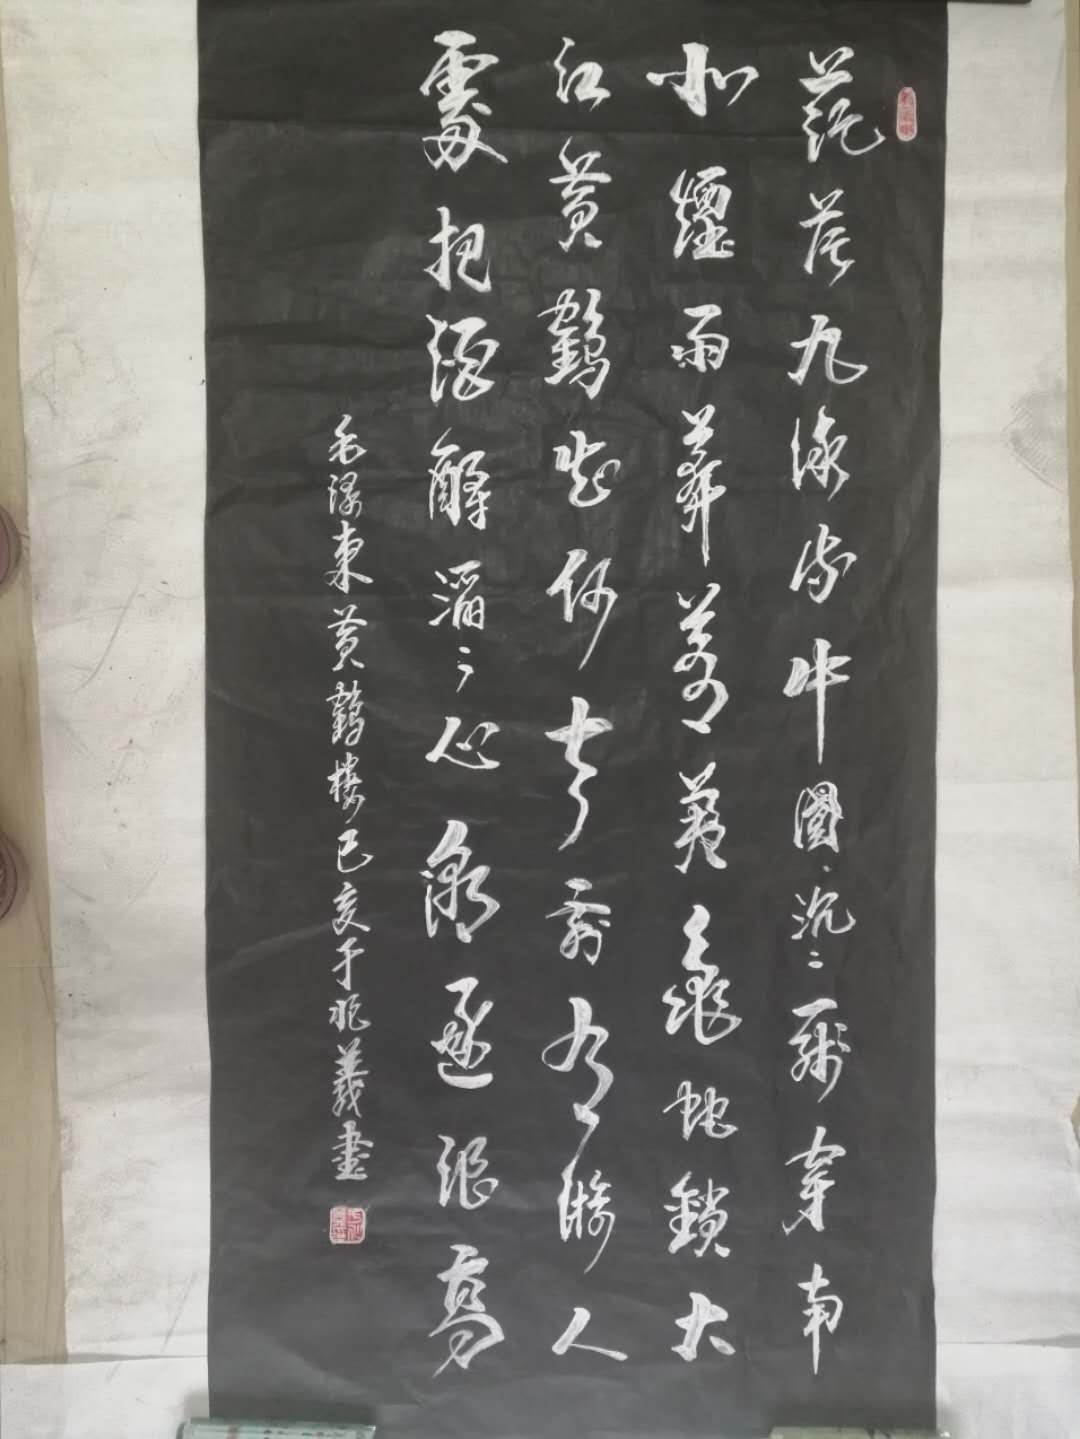 茫茫九派流中國沉〻一線穿南
北煙雨莽蒼蒼龜蛇鎖大
江黃鶴知何去剩有游人
處把酒酹滔〻心潮逐浪高
毛澤東黃鶴樓己亥于義書